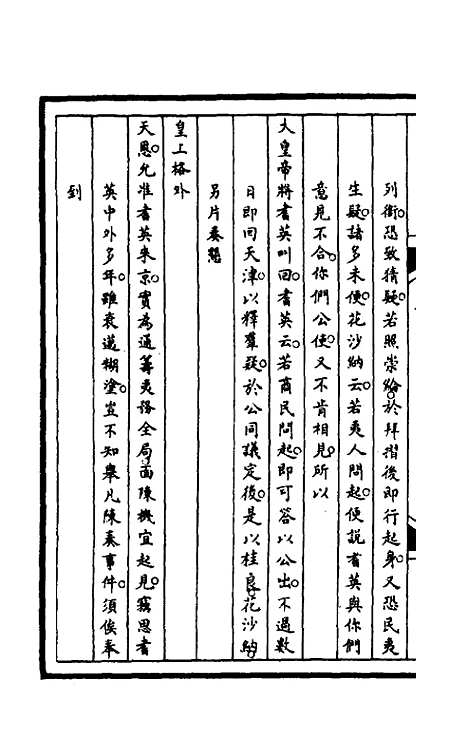 列銜。恐致猜疑。若照崇綸。於拜摺後即行起身。又恐民夷
生疑。諸多未便。花沙納云。若夷人問起。便說耆英與你們
意見不合。你們公使又不肯相見。所以
大皇帝將耆英叫回。耆英云。若商民問起。即可答以公出。不過數
日即回天津。以釋羣疑。於公同議定後。是以桂良。花沙納。
另片奏懇
皇上格外
天恩。允准耆英來京。實為通籌夷務全局。面陳機宜起見。竊思耆
英中外多年。雖衰邁糊塗。豈不知舉凡陳奏事件。須俟奉
到